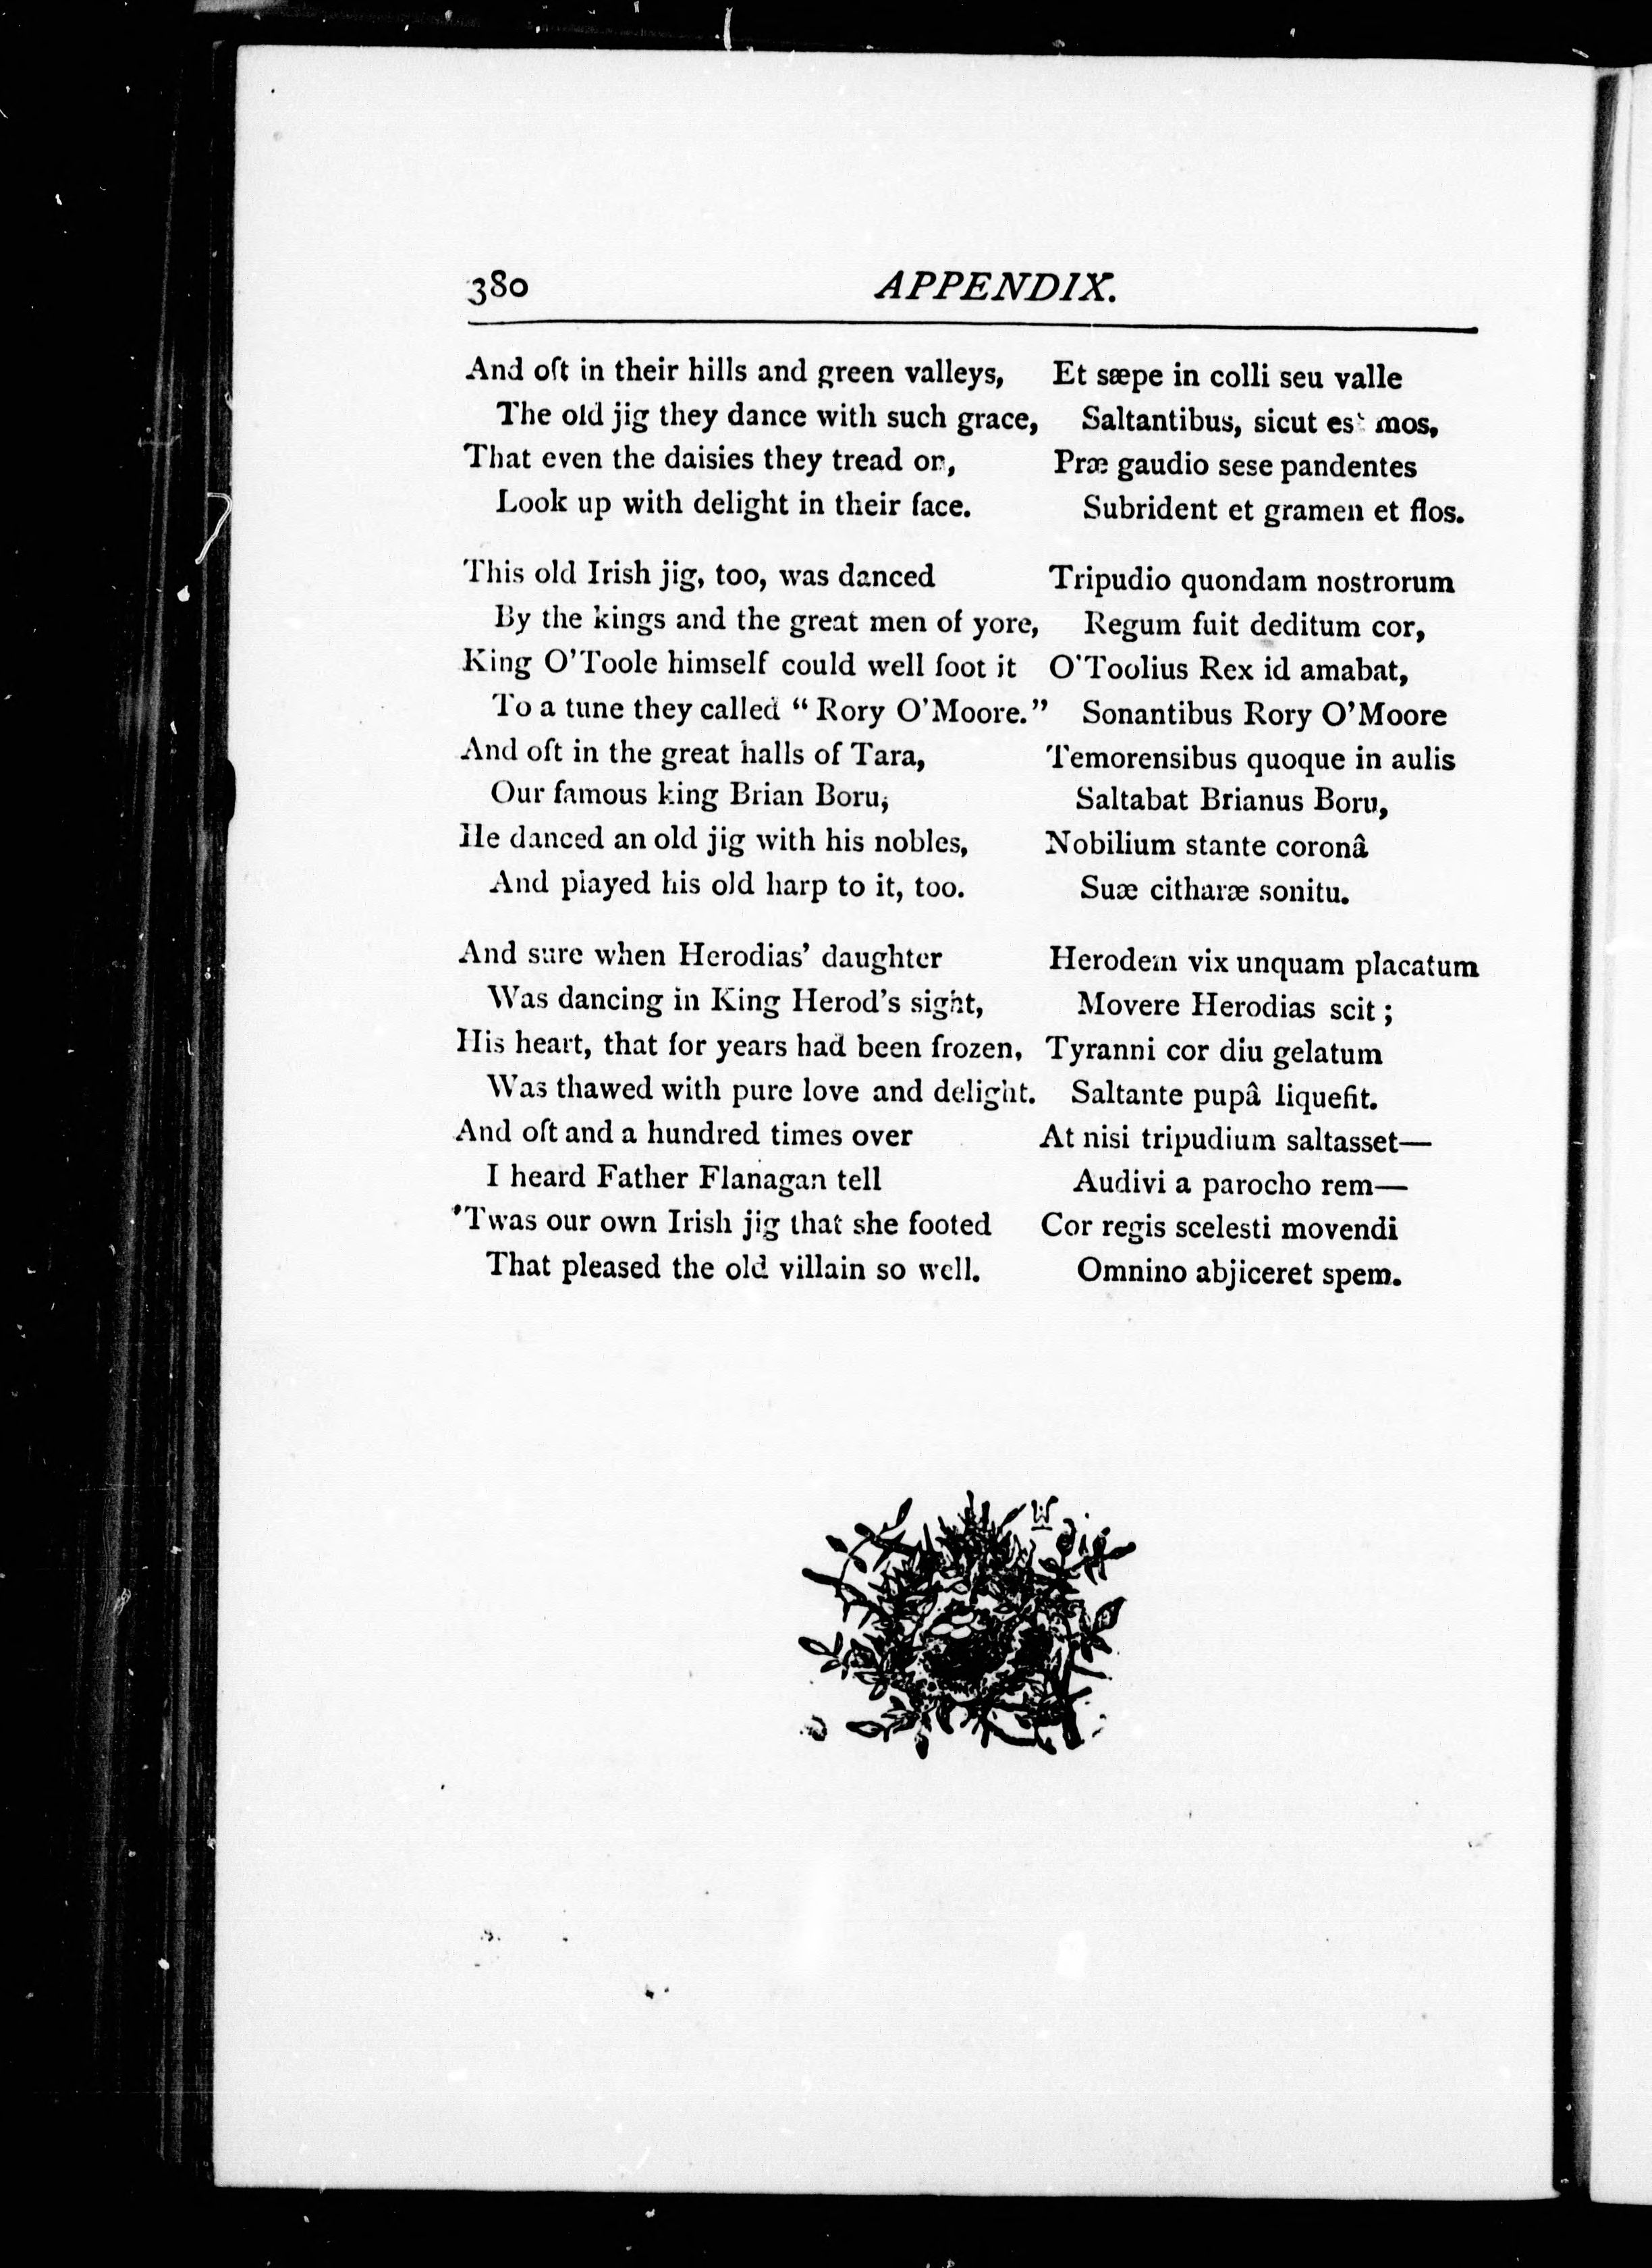 380
APPENDIX.
And oft in their hills and green valleys,
The old jig they dance with such grace,
That even the daisies they tread on,
Look up with delight in their face.
This old Irish jig, too, was danced
By the kings and the great men of yore,
King O'Toole himself could well foot it
To a tune they called " Rory O'Moore."
And oft in the great halls of Tara,
Our famous king Brian Boru,
He danced an old jig with his nobles,
And played his old harp to it, too.
And sure when Herodias' daughter
Was dancing in King Herod's sight,
His heart, that for years had been frozen,
Was thawed with pure love and delight.
And oft and a hundred times over
I heard Father Flanagan tell
'Twas our own Irish jig that she footed
That pleased the old villain so well.
Et sæpe in colli seu valle
Saltantibus, sicut est mos,
Præ gaudio sese pandentes
Subrident et gramen et flos.
Tripudio quondam nostrorum
Regum fuit deditum cor,
O'Toolius Rex id amabat,
Sonantibus Rory O'Moore
Temorensibus quoque in aulis
Saltabat Brianus Boru,
Nobilium stante coronâ
Suæ citharæ sonitu.
Herodem vix unquam placatum
Movere Herodias scit ;
Tyranni cor diu gelatum
Saltante pupâ liquefit.
At nisi tripudium saltasset—
Audivi a parocho rem—
Cor regis scelesti movendi
Omnino abjiceret spem.
W